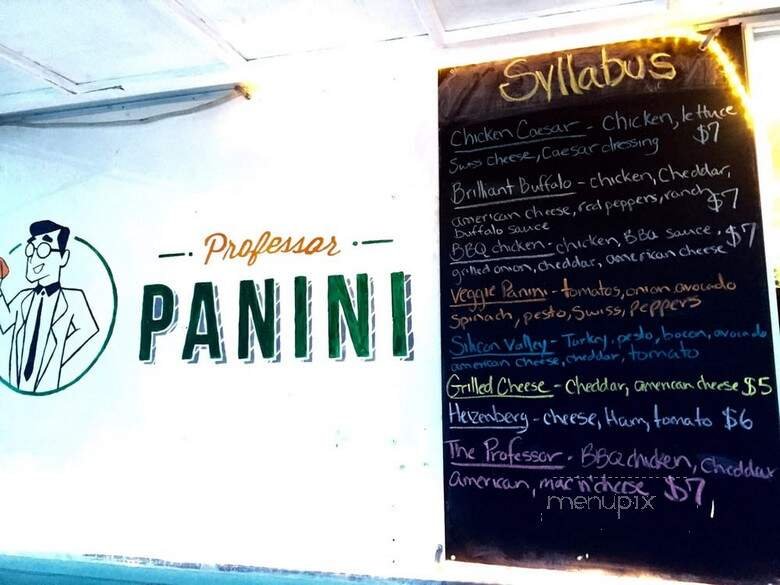 Professor
PANINI
Syllabus
Chicken Caesar - Chicken, lettuce
Swiss cheese, Caesar dressing $7
Brilliant Buffalo - chicken, Cheddar,
american cheese, red peppers, ranch $7
buffalo sauce
BBQ chicken - chicken, BBQ sauce, $7
grilled onion, cheddar, american cheese
Veggie Panini - tomatos, onion, avocado
Spinach, pesto, Swiss, Peppers
Silicon Valley - Turkey, pesto, bacon, avocado
american cheese, cheddar, tomato
Grilled Cheese - Cheddar, american cheese $5
Heizenberg - cheese, Ham, tomato $6
The Professor - BBQ chicken, Cheddar
American, mac n' cheese $7
menupix